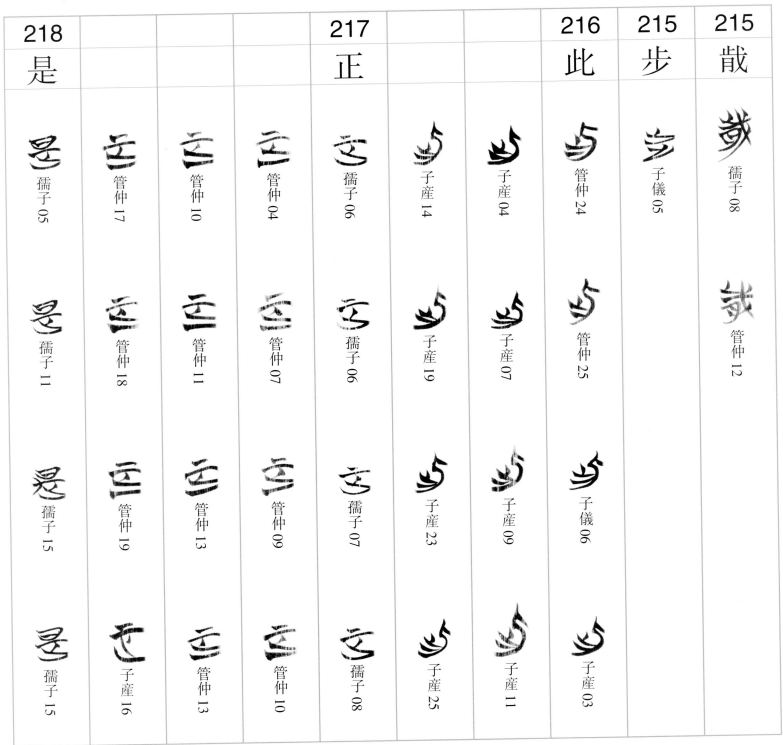 215
孺子 08
管仲 12
215
步
子儀 05
216
此
管仲 24
管仲 25
子儀 06
子産 03
子産 04
子産 07
子産 09
子産 11
子産 14
子産 19
子産 23
子産 25
217
正
孺子 06
孺子 06
孺子 07
孺子 08
管仲 04
管仲 07
管仲 09
管仲 10
管仲 10
管仲 11
管仲 13
管仲 13
管仲 17
管仲 18
管仲 19
子産 16
218
是
孺子 05
孺子 11
孺子 15
孺子 15